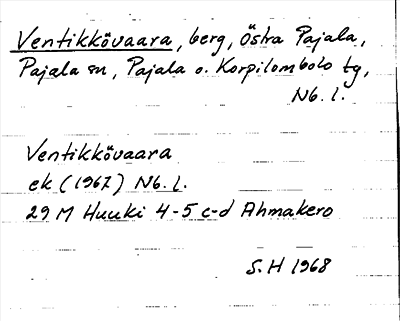 Ventikkövaara, berg, Östra Pajala,
Pajala sn, Pajala o. Korpilombolo tg,
Nb. l.
Ventikkövaara
ek (1967) Nb. l.
29 M Huuki 4-5 c-d Ahmakero
S. H 1968